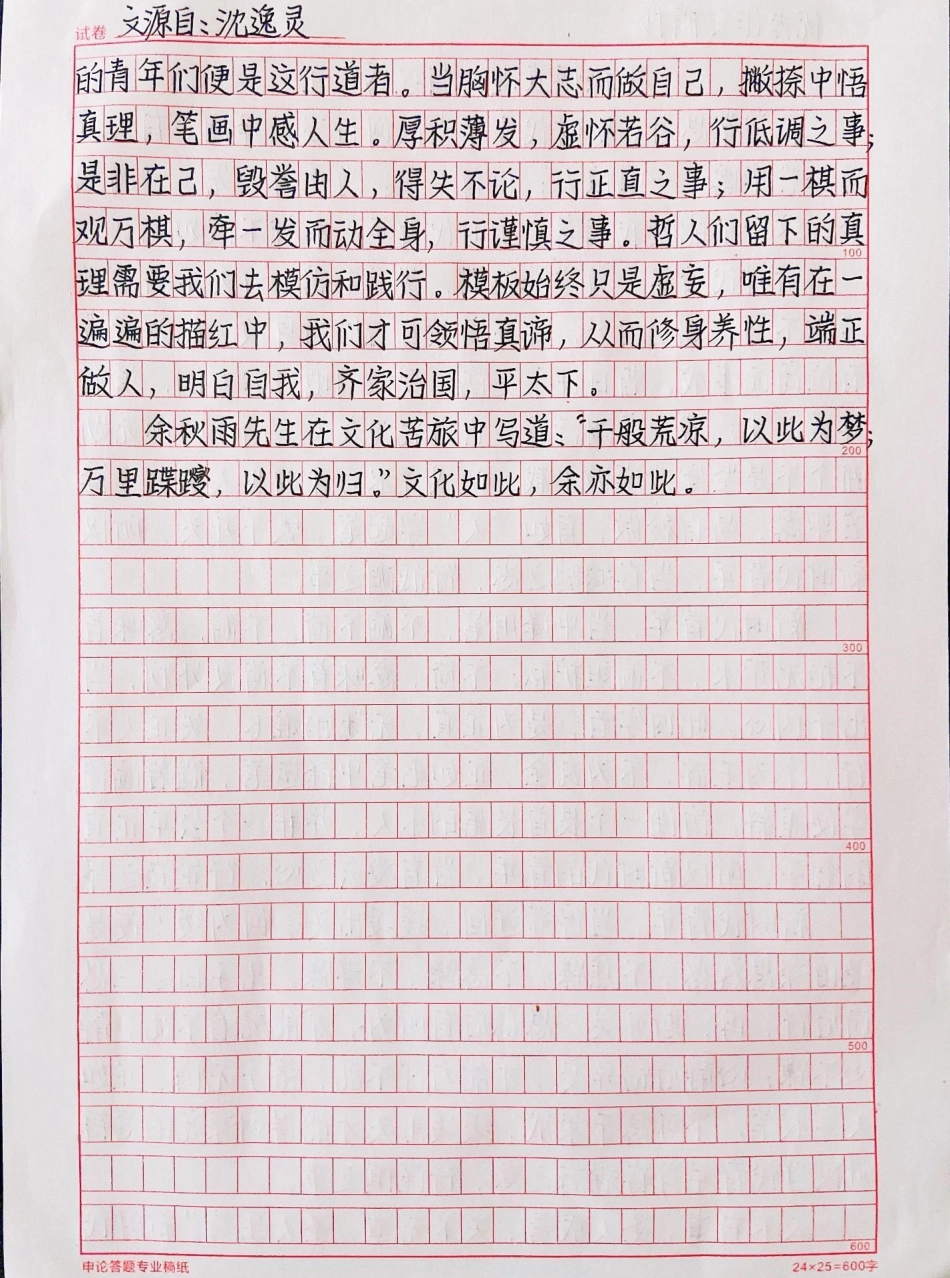 试卷 文源自：沈逸灵
的青年们便是这行道者。当胸怀大志而做自己，撇捺中悟
真理，笔画中感人生。厚积薄发，虚怀若谷，行低调之事；
是非在己，毁誉由人，得失不论，行正直之事；用一棋而
观万棋，牵一发而动全身，行谨慎之事。哲人们留下的真
100
理需要我们去模仿和践行。模板始终只是虚妄，唯有在一
遍遍的描红中，我们才可领悟真谛，从而修身养性，端正
做人，明白自我，齐家治国，平太下。
余秋雨先生在文化苦旅中写道：“千般荒凉，以此为梦；
200
万里蹀躞，以此为归。”文化如此，余亦如此。
300
400
500
600
申论答题专业稿纸 24×25=600字